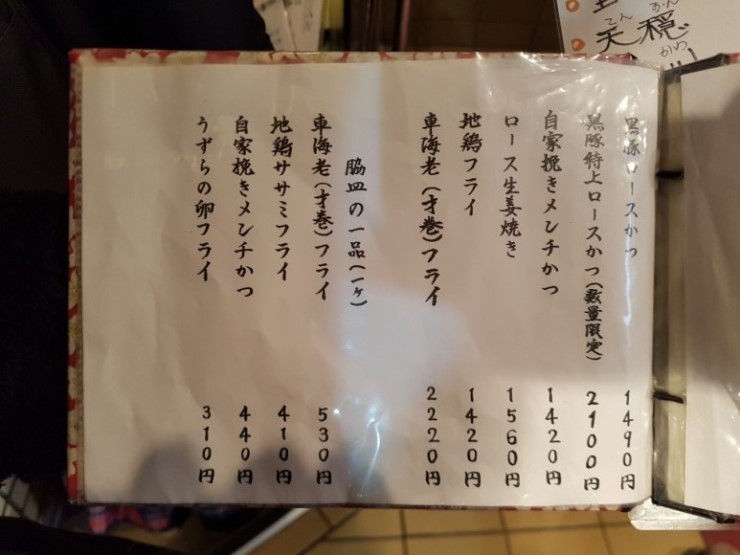 黒豚ロースかつ 1490円
黒豚特上ロースかつ(数量限定) 2100円
自家挽きメンチかつ 1420円
ロース生姜焼き 1560円
地鶏フライ 1420円
車海老(才巻)フライ 2220円
脇皿の一品(一ケ)
車海老(才巻)フライ 530円
地鶏ササミフライ 410円
自家挽きメンチかつ 440円
うずらの卵フライ 310円
てんおん
天穏